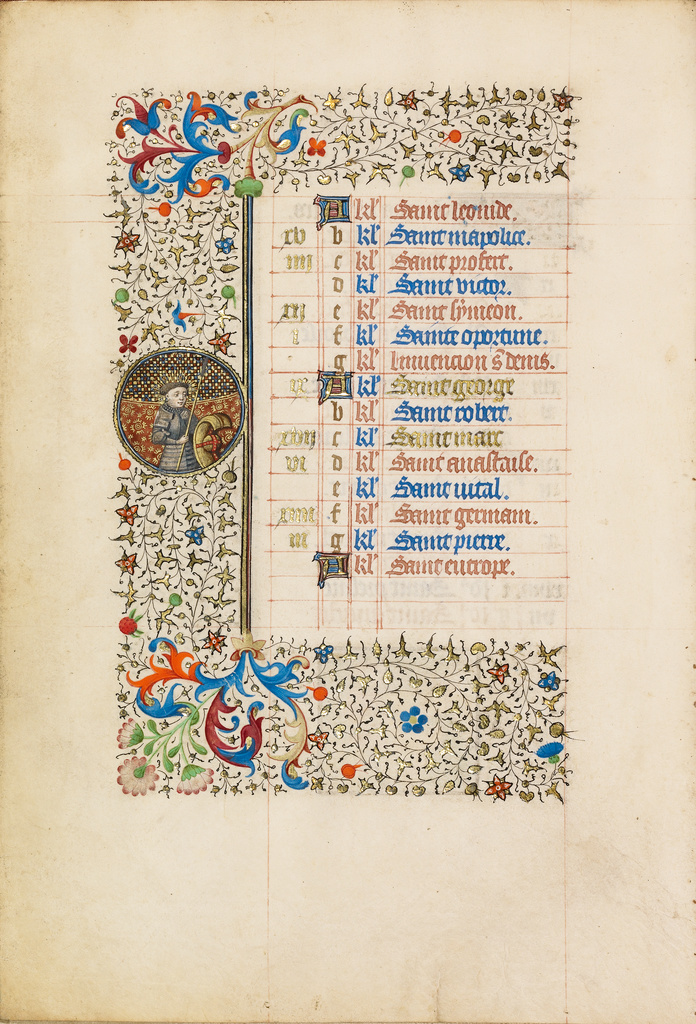 A kl' Saint leonide.
xv b kl' Saint mapolice.
iiii c kl' Saint profect.
d kl' Saint victor.
xii e kl' Saint symeon.
i f kl' Sainte oportune.
g kl' Linuencion s denis.
ix A kl' Saint george
b kl' Saint robert.
xvii c kl' Saint marc
vi d kl' Saint anastaise.
e kl' Saint uital.
xiiii f kl' Saint germain.
iii g kl' Saint pierre.
A kl' Saint eutrope.